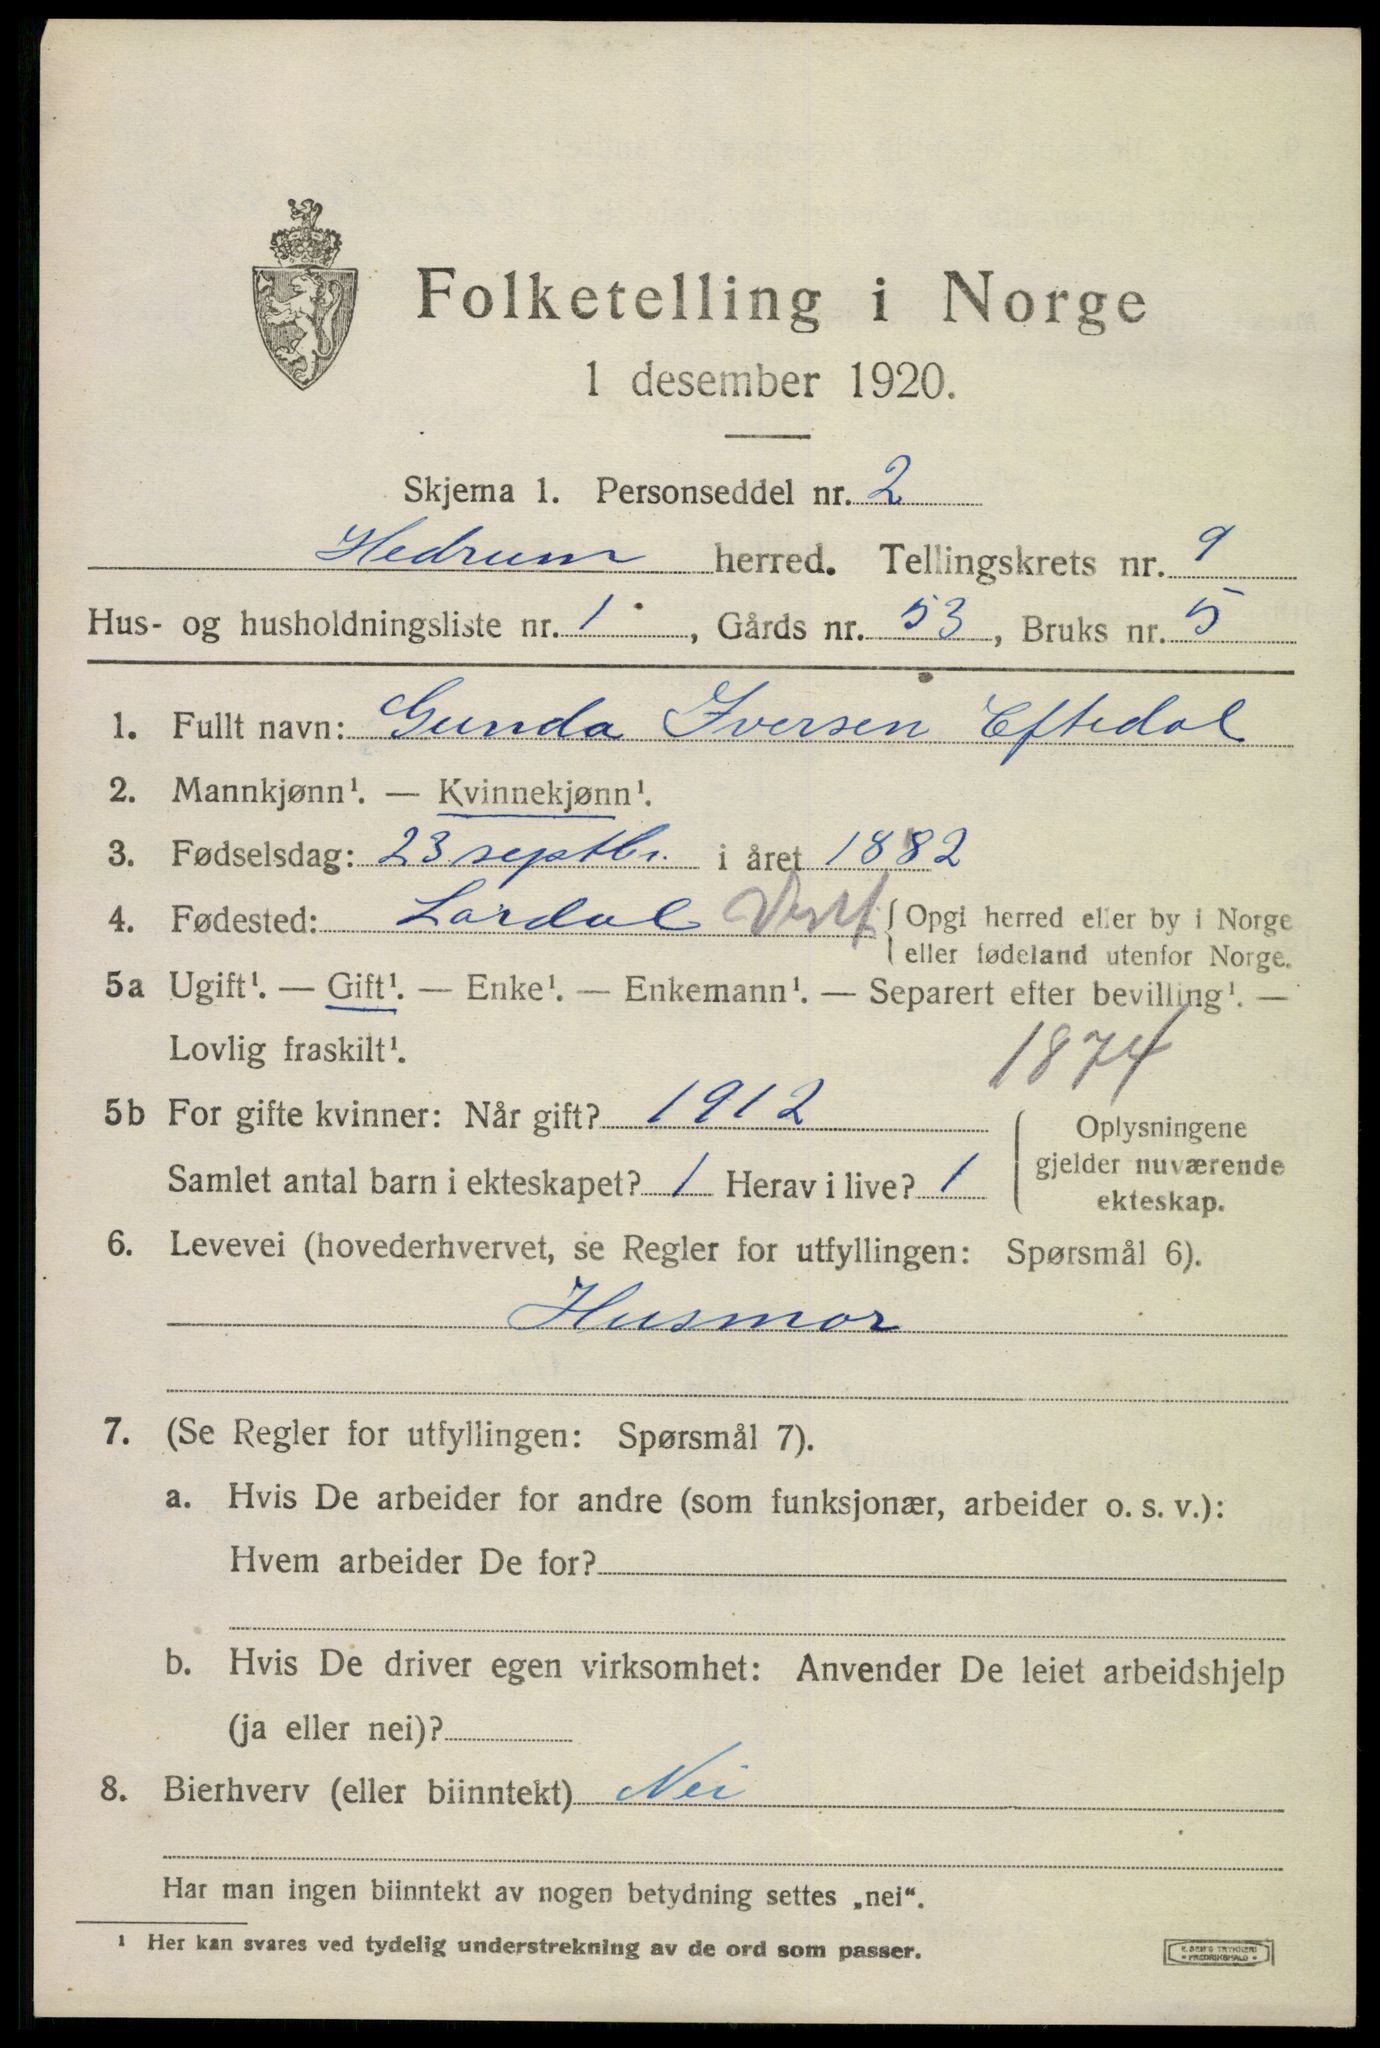 Folketelling i Norge
1 desember 1920.
Skjema 1. Personseddel nr. 2
Hedrum herred. Tellingskrets nr. 9
Hus- og husholdningsliste nr. 1, Gårds nr. 53, Bruks nr. 5
1. Fullt navn: Gunda Iversen Eftedal
2. Mannkjønn¹. — Kvinnekjønn¹.
3. Fødselsdag: 23 septbr. i året 1882
4. Fødested: Lardal Vestf. { Opgi herred eller by i Norge
eller fødeland utenfor Norge.
5a Ugift¹. — Gift¹. — Enke¹. — Enkemann¹. — Separert efter bevilling¹. —
Lovlig fraskilt¹.
1874
5b For gifte kvinner: Når gift? 1912
Samlet antal barn i ekteskapet? 1 Herav i live? 1
Oplysningene
gjelder nuværende
ekteskap.
6. Levevei (hovederhvervet, se Regler for utfyllingen: Spørsmål 6).
Husmor
7. (Se Regler for utfyllingen: Spørsmål 7).
a. Hvis De arbeider for andre (som funksjonær, arbeider o. s. v.):
Hvem arbeider De for?
b. Hvis De driver egen virksomhet: Anvender De leiet arbeidshjelp
(ja eller nei)?
8. Bierhverv (eller biinntekt) Nei
Har man ingen biinntekt av nogen betydning settes „nei“.
¹ Her kan svares ved tydelig understrekning av de ord som passer.
E. SEM'S TRYKKERI
• FREDRIKSHALD •